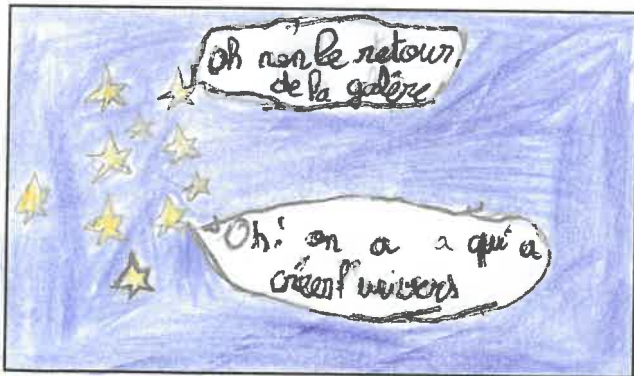 oh non le retour
de la galère
Oh! on a a qui a
créent univers